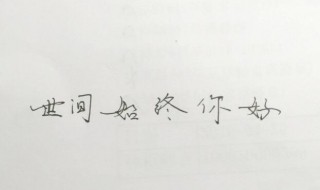 世间始终你好